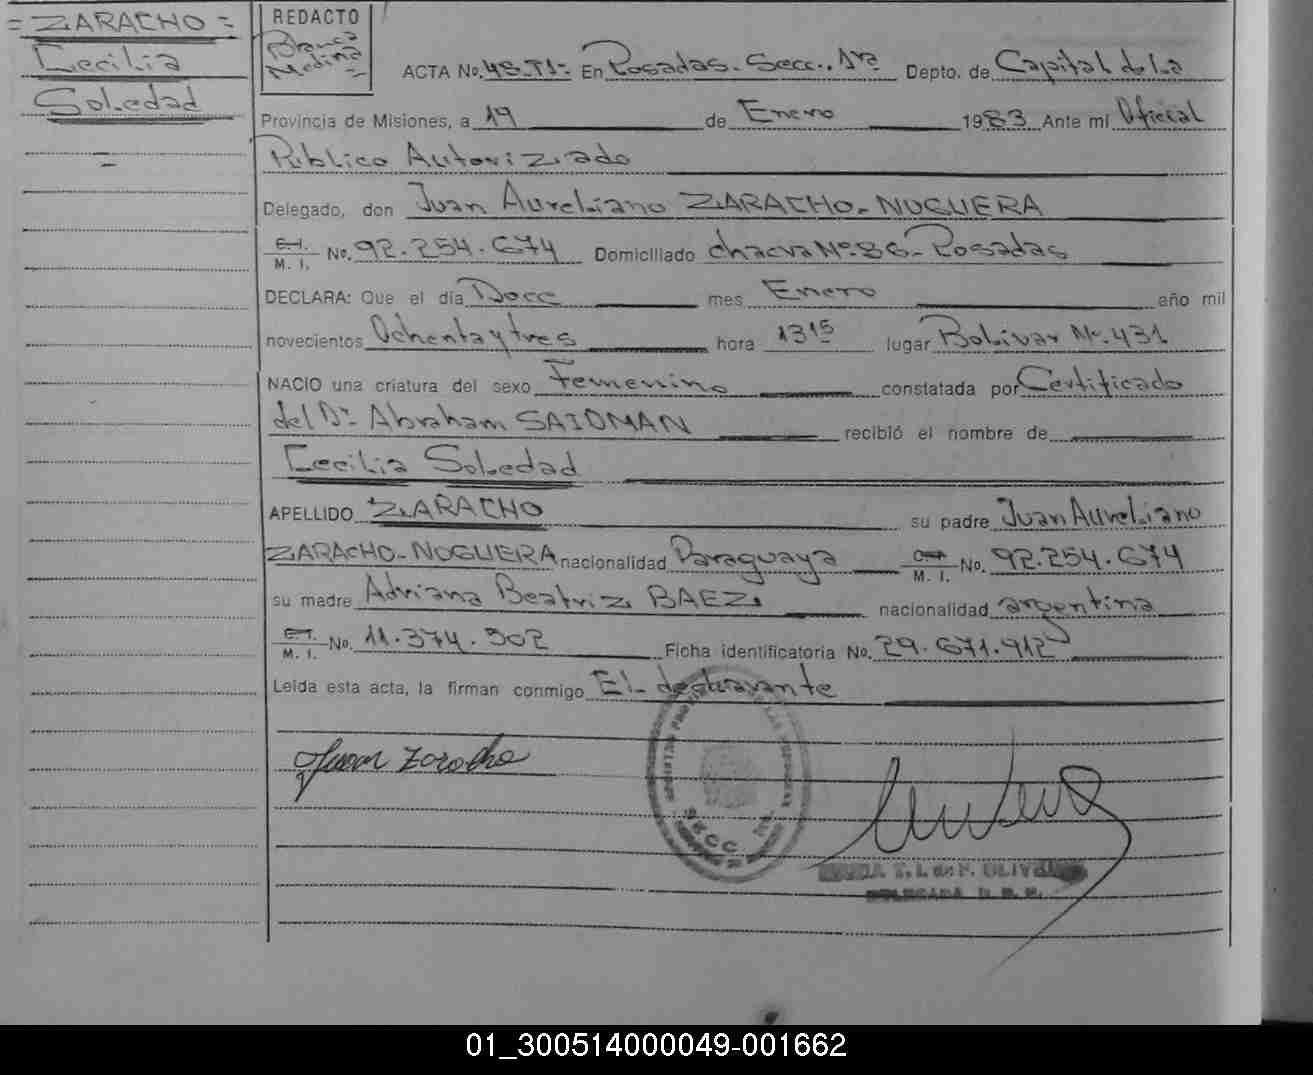 = ZARACHO =
Cecilia
Soledad
=
REDACTO
Blanca
Medina
=
ACTA No. 48-T1- En Posadas. Secc., 1ra Depto. de Capital de la
Provincia de Misiones, a 19 de Enero 1983 Ante mí Oficial
Público Autorizado
Delegado, don Juan Aureliano ZARACHO-NOGUERA
C.I. M. I. No. 92.254.674 Domiciliado chacra Nº. 86- Posadas
DECLARA: Que el día Doce mes Enero año mil
novecientos Ochenta y tres hora 1315 lugar Bolívar Nº. 431
NACIO una criatura del sexo Femenino constatada por Certificado
del Dr. Abraham SAIDMAN recibió el nombre de
Cecilia Soledad
APELLIDO ZARACHO su padre Juan Aureliano
ZARACHO-NOGUERA nacionalidad Paraguaya M. I. No. 92.254.674
su madre Adriana Beatriz BAEZ nacionalidad argentina
M. I. No. 11.374.502 Ficha identificatoria No. 29.671.912
Leída esta acta, la firman conmigo El declarante
Juan Zaracho
SECC
T. I. de F. OLIV
DELEGADA
01_300514000049-001662